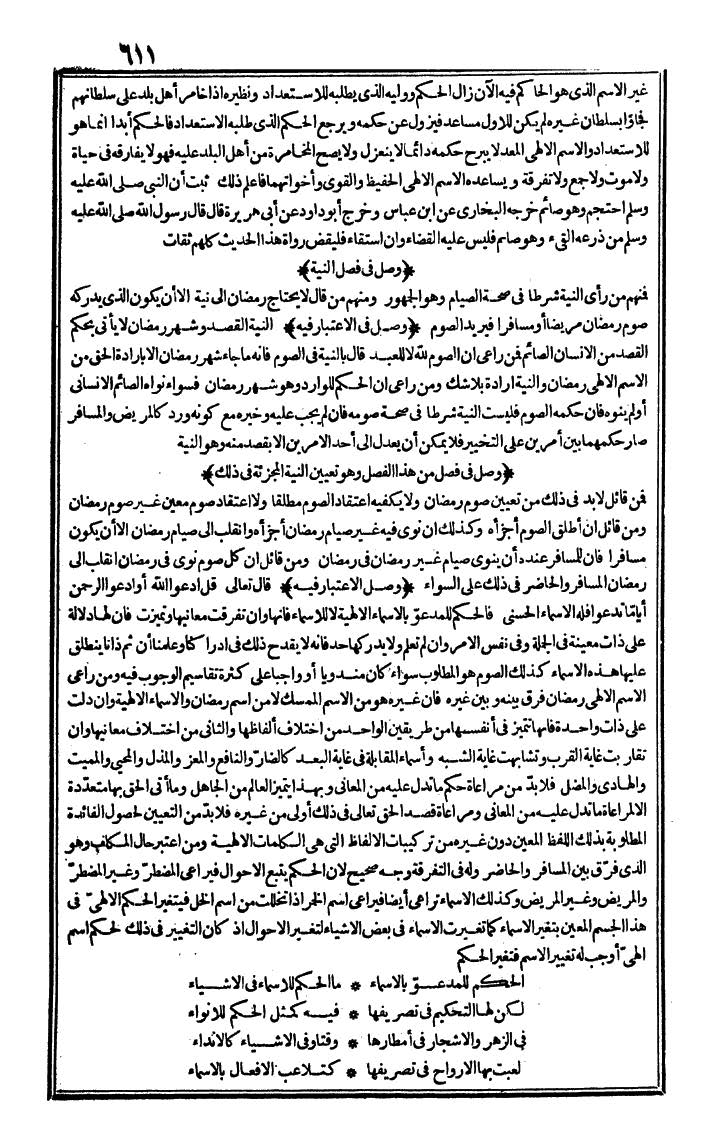 ٦١١
غير الاسم الذى هو الحاكم فيه الآن زال الحكم ووليه الذى يطلبه للاستعداد ونظيره اذا خامر أهل بلد على سلطانهم
فجاؤا بسلطان غيره لم يكن للاول مساعد فيزول عن حكمه ويرجع الحكم الذى طلبه الاستعداد فالحكم أبدا انما هو
للاستعداد والاسم الالهى المعد لا يبرح حكمه دائما لا ينعزل ولا يصح المخامرة من أهل البلد عليه فهو لا يفارقه فى حياة
ولا موت ولا جمع ولا تفرقة ويساعده الاسم الالهى الحفيظ والقوى وأخواتهما فاعلم ذلك ثبت أن النبى صلى الله عليه
وسلم احتجم وهو صائم خرجه البخارى عن ابن عباس وخرج أبو داود عن أبى هريرة قال قال رسول الله صلى الله عليه
وسلم من ذرعه القىء وهو صائم فليس عليه القضاء وان استقاء فليقض رواة هذا الحديث كلهم ثقات
﴿وصل فى فصل النية﴾
فنهم من رأى النية شرطا فى صحة الصيام وهو الجهور ومنهم من قال لا يحتاج رمضان الى نية الا أن يكون الذى يدركه
صوم رمضان مريضا أو مسافرا فيريد الصوم ﴿وصل فى الاعتبار فيه﴾ النية القصد وشهر رمضان لا يأتى بحكم
القصد من الانسان الصائم فمن راعى ان الصوم لله لا للعبد قال بالنية فى الصوم فانه ما جاء شهر رمضان الا بارادة الحق من
الاسم الالهى رمضان والنية ارادة بلا شك ومن راعى ان الحكم للوارد وهو شهر رمضان فسواء نواه الصائم الانسانى
أو لم ينوه فان حكمه الصوم فليست النية شرطا فى صحة صومه فان لم يجب عليه وخيره مع كونه ورد كالمريض والمسافر
صار حكمهما بين أمرين على التخيير فلا يمكن أن يعدل الى أحد الامرين الا بقصد منه وهو النية
﴿وصل فى فصل من هذا الفصل وهو تعيين النية المجزئة فى ذلك﴾
فمن قائل لا بد فى ذلك من تعيين صوم رمضان ولا يكفيه اعتقاد الصوم مطلقا ولا اعتقاد صوم معين غير صوم رمضان
ومن قائل ان أطلق الصوم أجزأه وكذلك ان نوى فيه غير صيام رمضان أجزأه وانقلب الى صيام رمضان الا أن يكون
مسافرا فان للمسافر عنده أن ينوى صيام غير رمضان فى رمضان ومن قائل ان كل صوم نوى فى رمضان انقلب الى
رمضان المسافر والحاضر فى ذلك على السواء ﴿وصل الاعتبار فيه﴾ قال تعالى قل ادعوا الله أو ادعوا الرحمن
أياما تدعوا فله الاسماء الحسنى فالحكم للمدعوّ بالاسماء الالهية لا للاسماء فانها وان تفرقت معانيها وتميزت فان لها دلالة
على ذات معينة فى الجملة وفى نفس الامر وان لم تعلم ولا يدركها حد فانه لا يقدح ذلك فى ادراكنا وعلمنا أن ثم ذاتا ينطلق
عليها هذه الاسماء كذلك الصوم هو المطلوب سواء كان مندوبا أو واجبا على كثرة تقاسيم الوجوب فيه ومن راعى
الاسم الالهى رمضان فرق بينه وبين غيره فان غيره هو من الاسم الممسك لا من اسم رمضان والاسماء الالهية وان دلت
على ذات واحدة فانها تتميز فى أنفسها من طريقين الواحد من اختلاف ألفاظها والثانى من اختلاف معانيها وان
تقاربت غاية القرب وتشابهت غاية الشبه وأسماء المقابلة فى غاية البعد كالضارّ والنافع والمعز والمذل والمحيى والمميت
والهادى والمضل فلا بدّ من مراعاة حكم ما تدل عليه من المعانى وبهذا يتميز العالم من الجاهل وما أتى الحق بها متعدّدة
الا لمراعاة ما تدل عليه من المعانى ومراعاة قصد الحق تعالى فى ذلك أولى من غيره فلا بدّ من التعيين لحصول الفائدة
المطلوبة بذلك اللفظ المعين دون غيره من تركيبات الالفاظ التى هى الكلمات الالهية ومن اعتبر حال المكلف وهو
الذى فرّق بين المسافر والحاضر وله فى التفرقة وجه صحيح لان الحكم يتبع الاحوال فيراعى المضطرّ وغير المضطرّ
والمريض وغير المريض وكذلك الاسماء تراعى أيضا فيراعى اسم الخمر اذا تخللت من اسم الخل فيتغير الحكم الالهىّ فى
هذا الجسم المعين بتغير الاسماء كما تغيرت الاسماء فى بعض الاشياء لتغير الاحوال اذ كان التغيير فى ذلك لحكم اسم
الهىّ أوجب له تغيير الاسم فتغير الحكم
الحكم للمدعوّ بالاسماء * ما الحكم للاسماء فى الاشياء
لكن لها التحكيم فى تصريفها * فيه كمثل الحكم للانواء
فى الزهر والاشجار فى أمطارها * وقتا وفى الاشياء كالانداء
لعبت بها الارواح فى تصريفها * كتلاعب الافعال بالاسماء